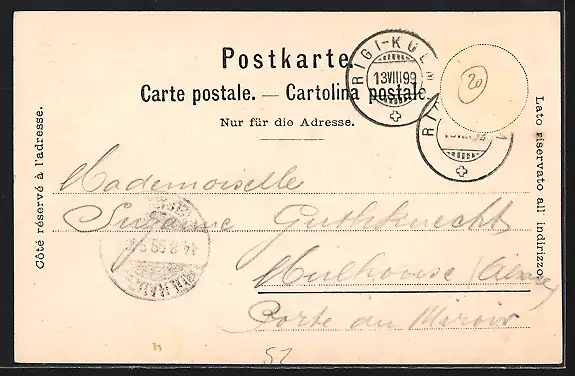 Postkarte.
Carte postale. — Cartolina postale.
Nur für die Adresse.
Côté réservé à l'adresse.
Lato riservato all' indirizzo.
RIGI-KULM
13VIII99
RI
20
Mademoiselle
Suzanne Guthknecht
Mulhouse (Alsace)
Porte du Miroir
14.8.99
52